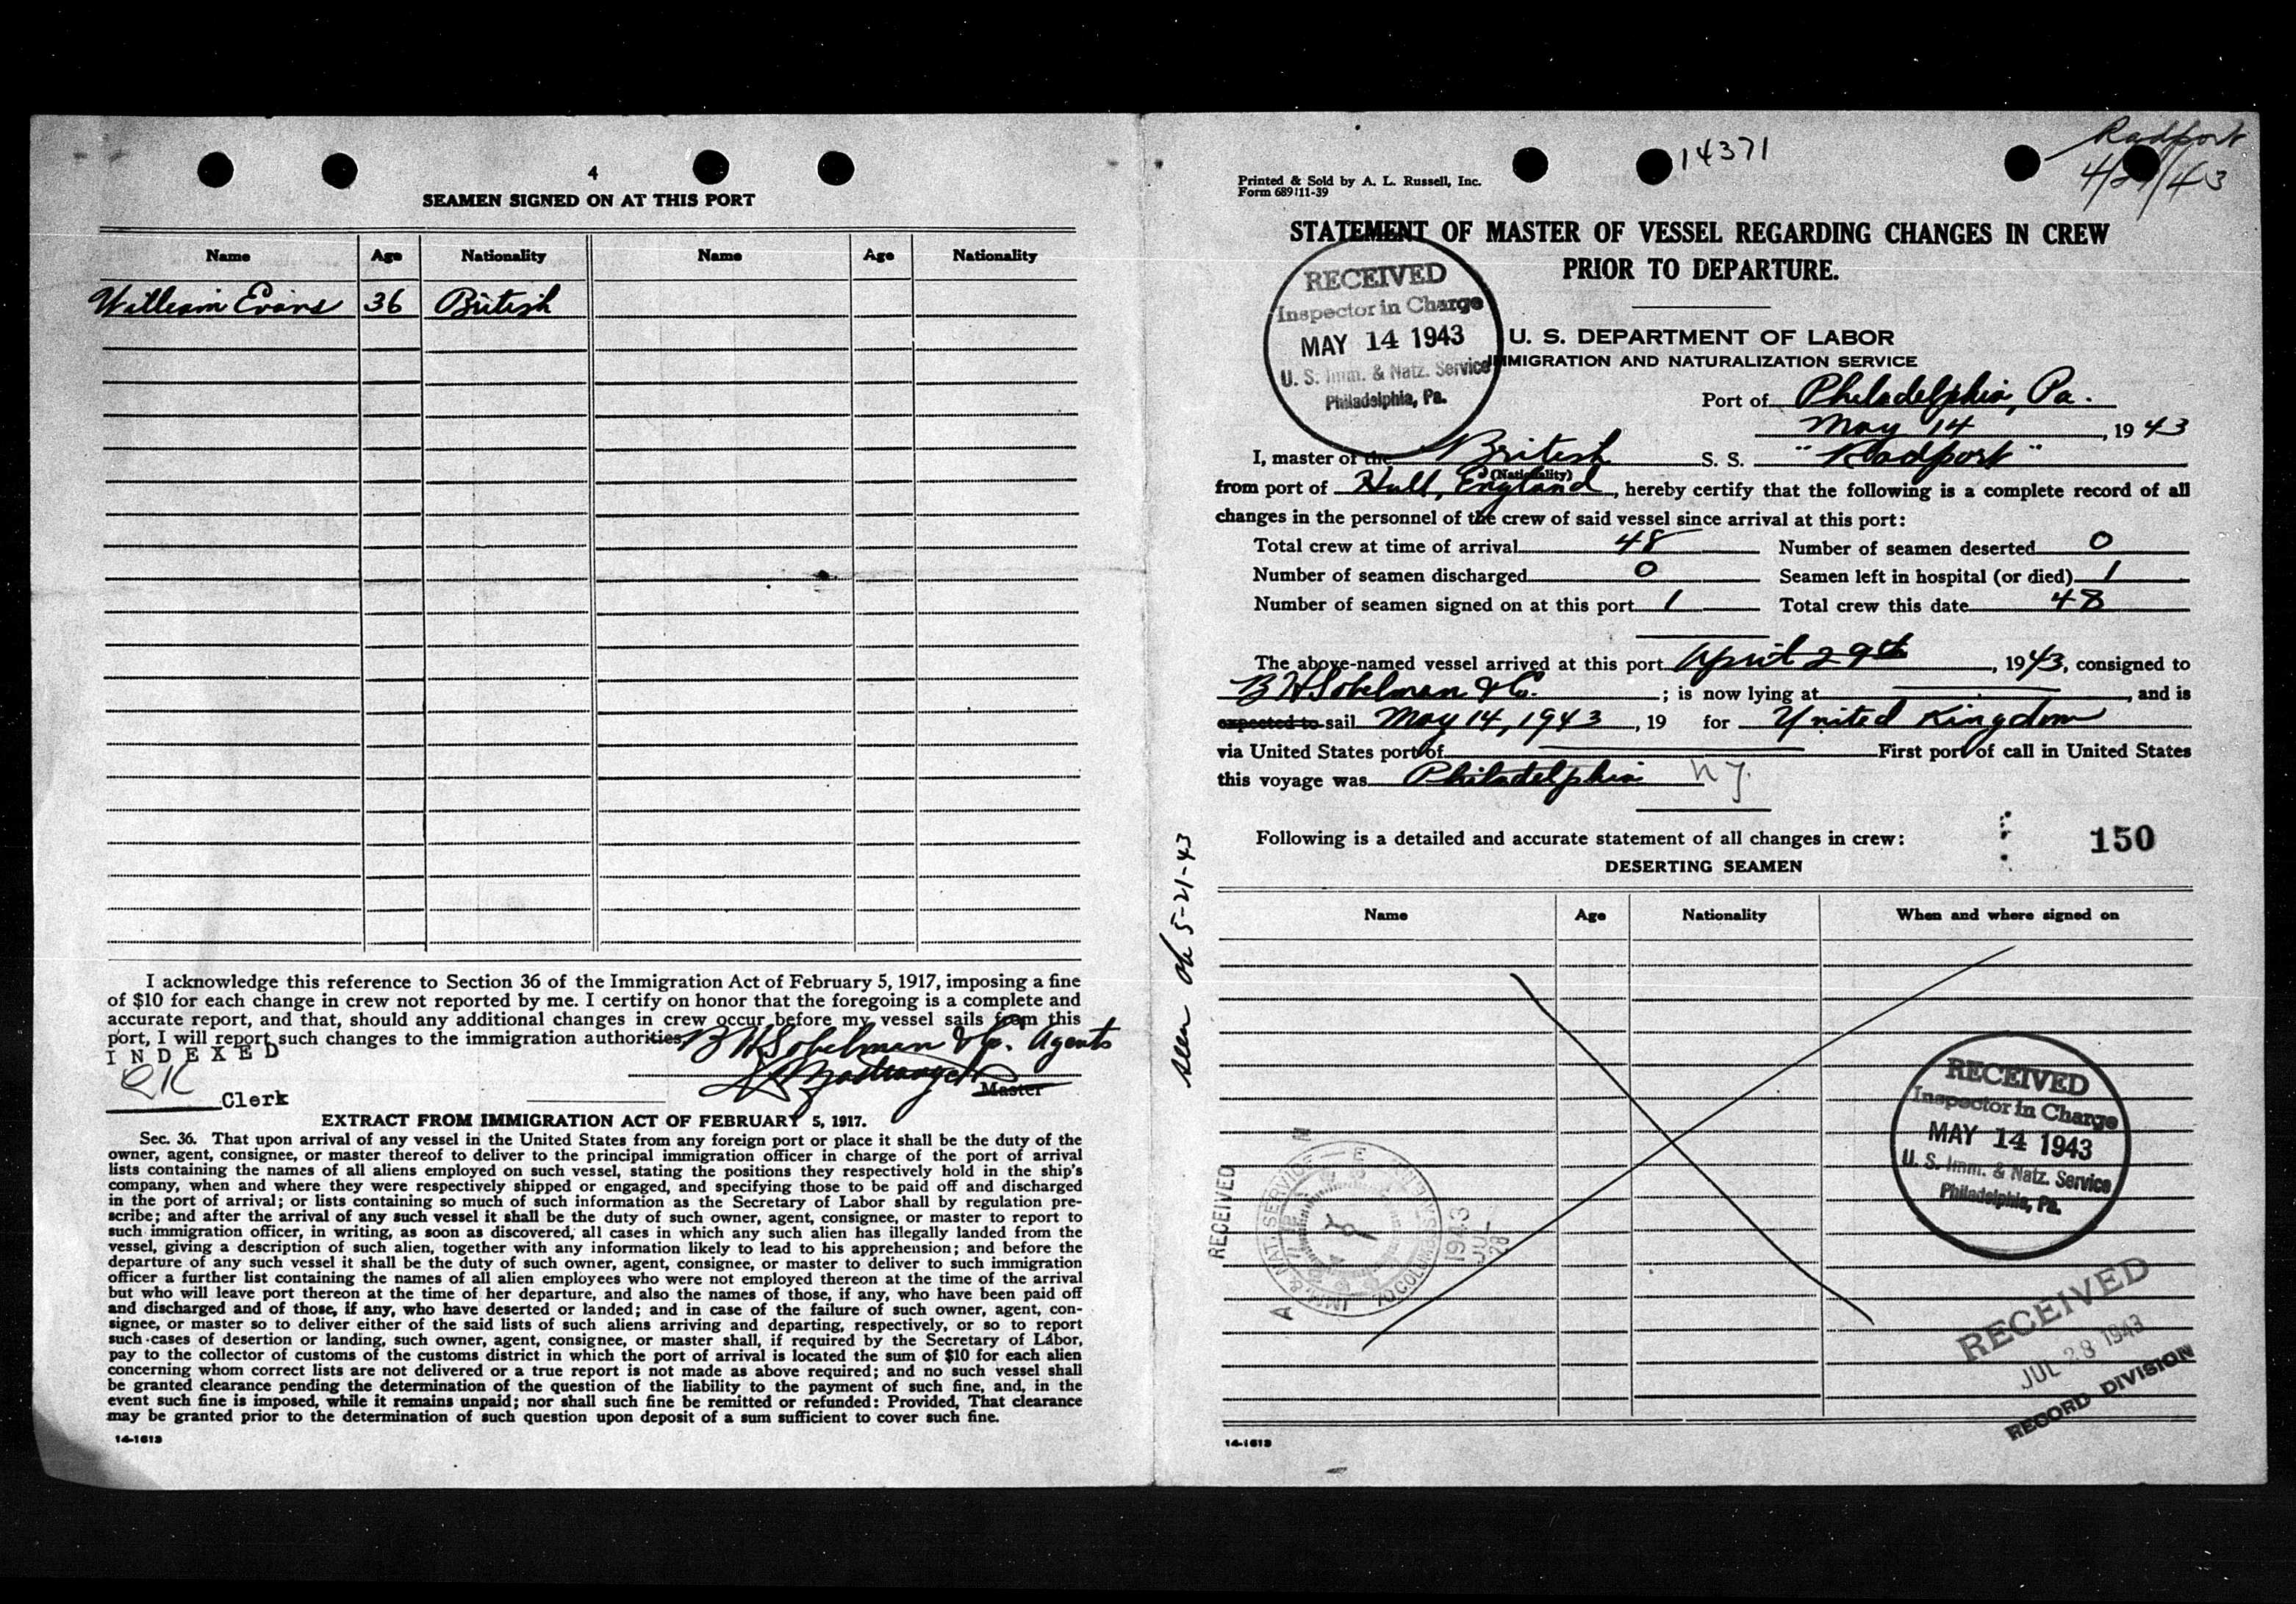 4
SEAMEN SIGNED ON AT THIS PORT
Name Age Nationality Name Age Nationality
William Evans 36 British
I acknowledge this reference to Section 36 of the Immigration Act of February 5, 1917, imposing a fine
of $10 for each change in crew not reported by me. I certify on honor that the foregoing is a complete and
accurate report, and that, should any additional changes in crew occur before my vessel sails from this
port, I will report such changes to the immigration authorities.
B H Sobelman & Co. Agents
INDEXED
Master
Clerk
EXTRACT FROM IMMIGRATION ACT OF FEBRUARY 5, 1917.
Sec. 36. That upon arrival of any vessel in the United States from any foreign port or place it shall be the duty of the
owner, agent, consignee, or master thereof to deliver to the principal immigration officer in charge of the port of arrival
lists containing the names of all aliens employed on such vessel, stating the positions they respectively hold in the ship's
company, when and where they were respectively shipped or engaged, and specifying those to be paid off and discharged
in the port of arrival; or lists containing so much of such information as the Secretary of Labor shall by regulation pre-
scribe; and after the arrival of any such vessel it shall be the duty of such owner, agent, consignee, or master to report to
such immigration officer, in writing, as soon as discovered, all cases in which any such alien has illegally landed from the
vessel, giving a description of such alien, together with any information likely to lead to his apprehension; and before the
departure of any such vessel it shall be the duty of such owner, agent, consignee, or master to deliver to such immigration
officer a further list containing the names of all alien employees who were not employed thereon at the time of the arrival
but who will leave port thereon at the time of her departure, and also the names of those, if any, who have been paid off
and discharged and of those, if any, who have deserted or landed; and in case of the failure of such owner, agent, con-
signee, or master so to deliver either of the said lists of such aliens arriving and departing, respectively, or so to report
such cases of desertion or landing, such owner, agent, consignee, or master shall, if required by the Secretary of Labor,
pay to the collector of customs of the customs district in which the port of arrival is located the sum of $10 for each alien
concerning whom correct lists are not delivered or a true report is not made as above required; and no such vessel shall
be granted clearance pending the determination of the question of the liability to the payment of such fine, and, in the
event such fine is imposed, while it remains unpaid; nor shall such fine be remitted or refunded: Provided, That clearance
may be granted prior to the determination of such question upon deposit of a sum sufficient to cover such fine.
14-1613
14371
Radport
4/29/43
Printed & Sold by A. L. Russell, Inc.
Form 689111-39
STATEMENT OF MASTER OF VESSEL REGARDING CHANGES IN CREW
PRIOR TO DEPARTURE.
RECEIVED
Inspector in Charge
MAY 14 1943
U. S. Imm. & Natz. Service
Philadelphia, Pa.
U. S. DEPARTMENT OF LABOR
IMMIGRATION AND NATURALIZATION SERVICE
Port of Philadelphia, Pa.
May 14, 1943
I, master of the British S. S. "Radport"
(Nationality)
from port of Hull, England, hereby certify that the following is a complete record of all
changes in the personnel of the crew of said vessel since arrival at this port:
Total crew at time of arrival 48 Number of seamen deserted 0
Number of seamen discharged 0 Seamen left in hospital (or died) 1
Number of seamen signed on at this port 1 Total crew this date 48
The above-named vessel arrived at this port April 29th, 1943, consigned to
B H Sobelman & Co.; is now lying at , and is
expected to sail May 14, 1943, 19 for United Kingdom
via United States port of First port of call in United States
this voyage was Philadelphia N.Y.
Following is a detailed and accurate statement of all changes in crew:
150
DESERTING SEAMEN
Name Age Nationality When and where signed on
seen ok 5-21-43
RECEIVED
Inspector in Charge
MAY 14 1943
U. S. Imm. & Natz. Service
Philadelphia, Pa.
RECEIVED
1943
JUL
28
RECEIVED
JUL 28 1943
RECORD DIVISION
14-1613